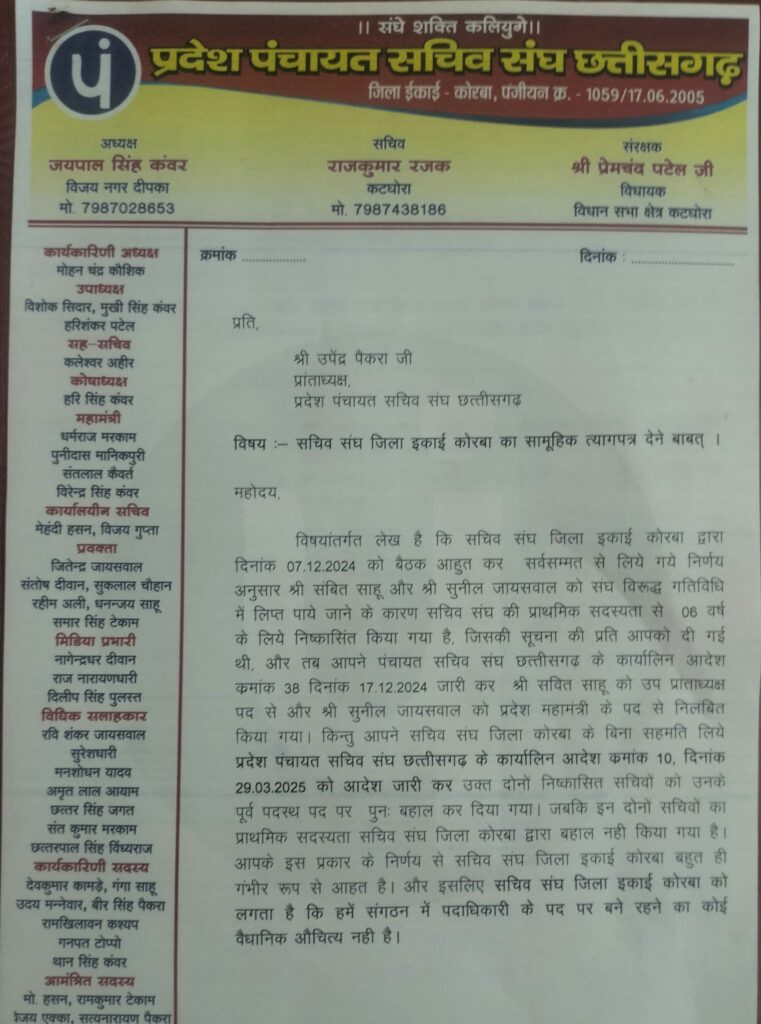 ।। संघे शक्ति कलियुगे।।
पं
प्रदेश पंचायत सचिव संघ छत्तीसगढ़
जिला ईकाई - कोरबा, पंजीयन क्र. - 1059/17.06.2005
अध्यक्ष
जयपाल सिंह कंवर
विजय नगर दीपका
मो. 7987028653
सचिव
राजकुमार रजक
कटघोरा
मो. 7987438186
संरक्षक
श्री प्रेमचंद पटेल जी
विधायक
विधान सभा क्षेत्र कटघोरा
कार्यकारिणी अध्यक्ष
मोहन चंद्र कौशिक
उपाध्यक्ष
विशोक सिदार, मुखी सिंह कंवर
हरिशंकर पटेल
सह-सचिव
कलेश्वर अहीर
कोषाध्यक्ष
हरि सिंह कंवर
महामंत्री
धर्मराज मरकाम
पुनीदास मानिकपुरी
संतलाल कैवर्त
विरेन्द्र सिंह कंवर
कार्यालयीन सचिव
मेहंदी हसन, विजय गुप्ता
प्रवक्ता
जितेन्द्र जायसवाल
संतोष दीवान, सुकलाल चौहान
रहीम अली, धनन्जय साहू
समार सिंह टेकाम
मिडिया प्रभारी
नागेन्द्रधर दीवान
राज नारायणधारी
दिलीप सिंह पुलस्त
विधिक सलाहकार
रवि शंकर जायसवाल
सुरेशधारी
मनशोधन यादव
अमृत लाल आयाम
छत्तर सिंह जगत
संत कुमार मरकाम
छत्तरपाल सिंह विंध्यराज
कार्यकारिणी सदस्य
देवकुमार कामड़े, गंगा साहू
उदय मन्नेवार, बीर सिंह पैकरा
रामखिलावन कश्यप
गनपत टोप्पो
थान सिंह कंवर
आमंत्रित सदस्य
मो. हसन, रामकुमार टेकाम
एक्का, सत्यनारायण पैकरा
क्रमांक ..................
दिनांक : .............................
प्रति,
श्री उपेंद्र पैकरा जी
प्रांताध्यक्ष,
प्रदेश पंचायत सचिव संघ छत्तीसगढ़
विषय :– सचिव संघ जिला इकाई कोरबा का सामूहिक त्यागपत्र देने बाबत् ।
महोदय,
विषयांतर्गत लेख है कि सचिव संघ जिला इकाई कोरबा द्वारा
दिनांक 07.12.2024 को बैठक आहुत कर सर्वसम्मत से लिये गये निर्णय
अनुसार श्री संबित साहू और श्री सुनील जायसवाल को संघ विरूद्ध गतिविधि
में लिप्त पाये जाने के कारण सचिव संघ की प्राथमिक सदस्यता से 06 वर्ष
के लिये निष्कासिंत किया गया है, जिसकी सूचना की प्रति आपको दी गई
थी, और तब आपने पंचायत सचिव संघ छत्तीसगढ़ के कार्यालिन आदेश
क्रमांक 38 दिनांक 17.12.2024 जारी कर श्री सवित साहू को उप प्रांताध्यक्ष
पद से और श्री सुनील जायसवाल को प्रदेश महामंत्री के पद से निलंबित
किया गया। किन्तु आपने सचिव संघ जिला कोरबा के बिना सहमति लिये
प्रदेश पंचायत सचिव संघ छत्तीसगढ़ के कार्यालिन आदेश क्रमांक 10, दिनांक
29.03.2025 को आदेश जारी कर उक्त दोनों निष्कासित सचिवों को उनके
पूर्व पदस्थ पद पर पुनः बहाल कर दिया गया। जबकि इन दोनों सचिवों का
प्राथमिक सदस्यता सचिव संघ जिला कोरबा द्वारा बहाल नही किया गया है।
आपके इस प्रकार के निर्णय से सचिव संघ जिला इकाई कोरबा बहुत ही
गंभीर रूप से आहत है। और इसलिए सचिव संघ जिला इकाई कोरबा को
लगता है कि हमें संगठन में पदाधिकारी के पद पर बने रहने का कोई
वैधानिक औचित्य नही है।